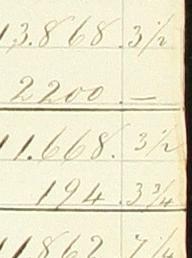 13.868. 3 1/2
2200. —
11.668. 3 1/2
194. 3 3/4
11.862. 7 1/4